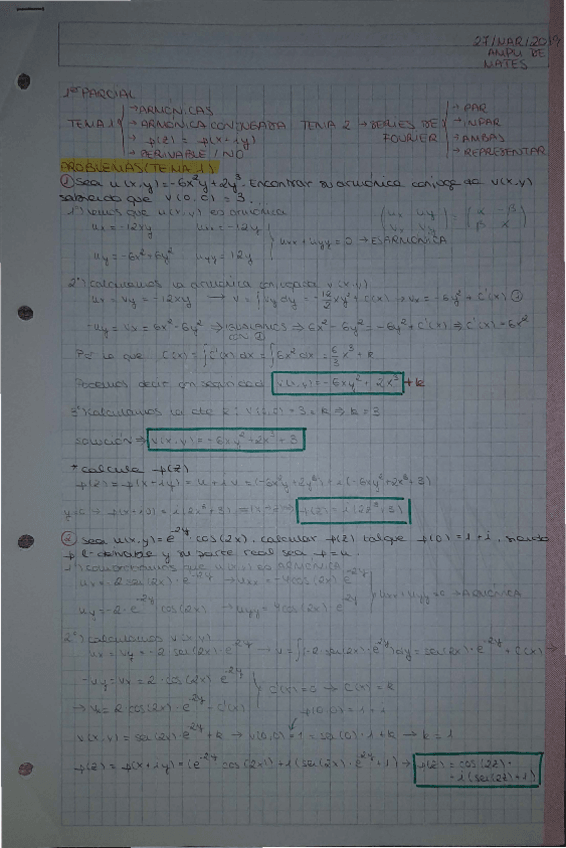 27/MAR/2019
AMPLI DE
MATES
1er PARCIAL
TEMA 1 → ARMÓNICAS
→ ARMÓNICA CONJUGADA
→ f(z) = f(x+iy)
→ DERIVABLE / NO
TEMA 2 → SERIES DE FOURIER
→ PAR
→ IMPAR
→ AMBAS
→ REPRESENTAR
PROBLEMAS (TEMA 1)
① Sea u(x,y) = -6x²y + 2y³. Encontrar su armónica conjugada v(x,y)
sabiendo que v(0,0) = 3.
1º) Vemos que u(x,y) es armónica
ux = -12xy uxx = -12y
uy = -6x² + 6y² uyy = 12y
uxx + uyy = 0 → ES ARMÓNICA
2º) Calculamos la armónica conjugada v(x,y)
ux = vy = -12xy → v = ∫ vy dy = -12/2 xy² + C(x) → vx = -6y² + C'(x) ①
-uy = vx = 6x² - 6y² → IGUALAMOS CON ① → 6x² - 6y² = -6y² + C'(x) → C'(x) = 6x²
Por lo que C(x) = ∫ C'(x) dx = ∫ 6x² dx = 6/3 x³ + k
Podemos decir con seguridad v(x,y) = -6xy² + 2x³ + k
3º) Calculamos la cte k: v(0,0) = 3 = k → k = 3
solución → v(x,y) = -6xy² + 2x³ + 3
* calcula f(z)
f(z) = f(x+iy) = u + iv = (-6x²y + 2y³) + i(-6xy² + 2x³ + 3)
y=0 → f(x+i0) = i(2x³+3) → f(z) = i(2z³+3)
② Sea u(x,y) = e^-2y · cos(2x). Calcular f(z) tal que f(0) = 1+i, siendo
f ℂ-derivable y su parte real sea f = u.
1º) Comprobamos que u(x,y) es ARMÓNICA
ux = -2 sen(2x) · e^-2y → uxx = -4cos(2x) e^-2y
uy = -2 · e^-2y cos(2x) → uyy = 4cos(2x) · e^-2y
uxx + uyy = 0 → ARMÓNICA
2º) Calculamos v(x,y)
ux = vy = -2 sen(2x) · e^-2y → v = ∫(-2 sen(2x) · e^-2y) dy = sen(2x) · e^-2y + C(x) →
-uy = vx = 2 · cos(2x) e^-2y
→ vx = 2 cos(2x) · e^-2y + C'(x)
C'(x) = 0 → C(x) = k
f(0,0) = 1+i
v(x,y) = sen(2x) · e^-2y + k → v(0,0) = 1 = sen(0) · 1 + k → k = 1
f(z) = f(x+iy) = (e^-2y · cos(2x)) + i(sen(2x) · e^-2y + 1) → f(z) = cos(2z) +
+ i(sen(2z)+1)